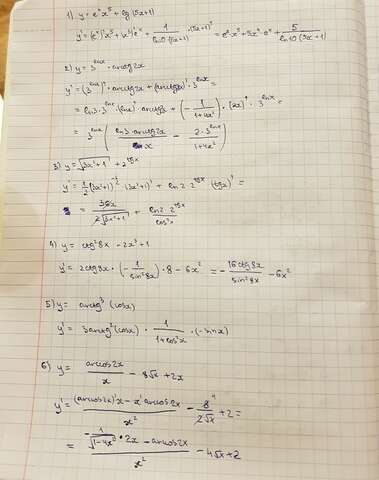 1) y = eˣx⁵ + lg(5x+1)
y' = (eˣ)'x⁵ + (x⁵)'eˣ + 1/(ln10·(5x+1)) · (5x+1)' = eˣx⁵ + 5x⁴eˣ + 5/(ln10(5x+1))
2) y = 3^(lnx) · arcctg2x
y' = (3^(lnx))' · arcctg2x + (arcctg2x)' · 3^(lnx) =
= ln3 · 3^(lnx) · (lnx)' · arcctg2x + (-1/(1+4x²)) · (2x)' · 3^(lnx) =
= 3^(lnx) (ln3·arcctg2x/x - 2·3^(lnx)/(1+4x²))
3) y = √(3x²+1) + 2^(tgx)
y' = 1/2 (3x²+1)^(-1/2) · (3x²+1)' + ln2 · 2^(tgx) · (tgx)' =
= 6x/(2√(3x²+1)) + ln2·2^(tgx)/cos²x
4) y = ctg²8x - 2x³ + 1
y' = 2ctg8x · (-1/sin²8x) · 8 - 6x² = -16ctg8x/sin²8x - 6x²
5) y = arctg³(cosx)
y' = 3arctg²(cosx) · 1/(1+cos²x) · (-sinx)
6) y = arccos2x/x - 8√x + 2x
y' = ((arccos2x)'x - x'arccos2x)/x² - 8/(2√x) + 2 =
= (-1/√(1-4x²) · 2x - arccos2x)/x² - 4√x + 2